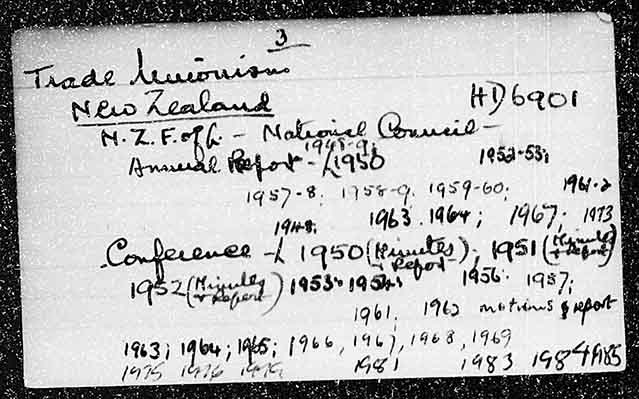 3
Trade Unionism
New Zealand HD6901
N.Z.F.of L. - National Council -
1948-9;
Annual Report - 1950 1952-53;
1957-8; 1958-9. 1959-60; 1961-2
1948. 1963. 1964; 1967; 1973
Conference - 1950 (Minutes + Report), 1951 (Minutes + Report)
1952 (Minutes + Report) 1953; 1954; 1956. 1957;
1961. 1962 motions & report
1963; 1964; 1965; 1966, 1967, 1968, 1969
1975 1976 1979 1981 1983 1984 1985